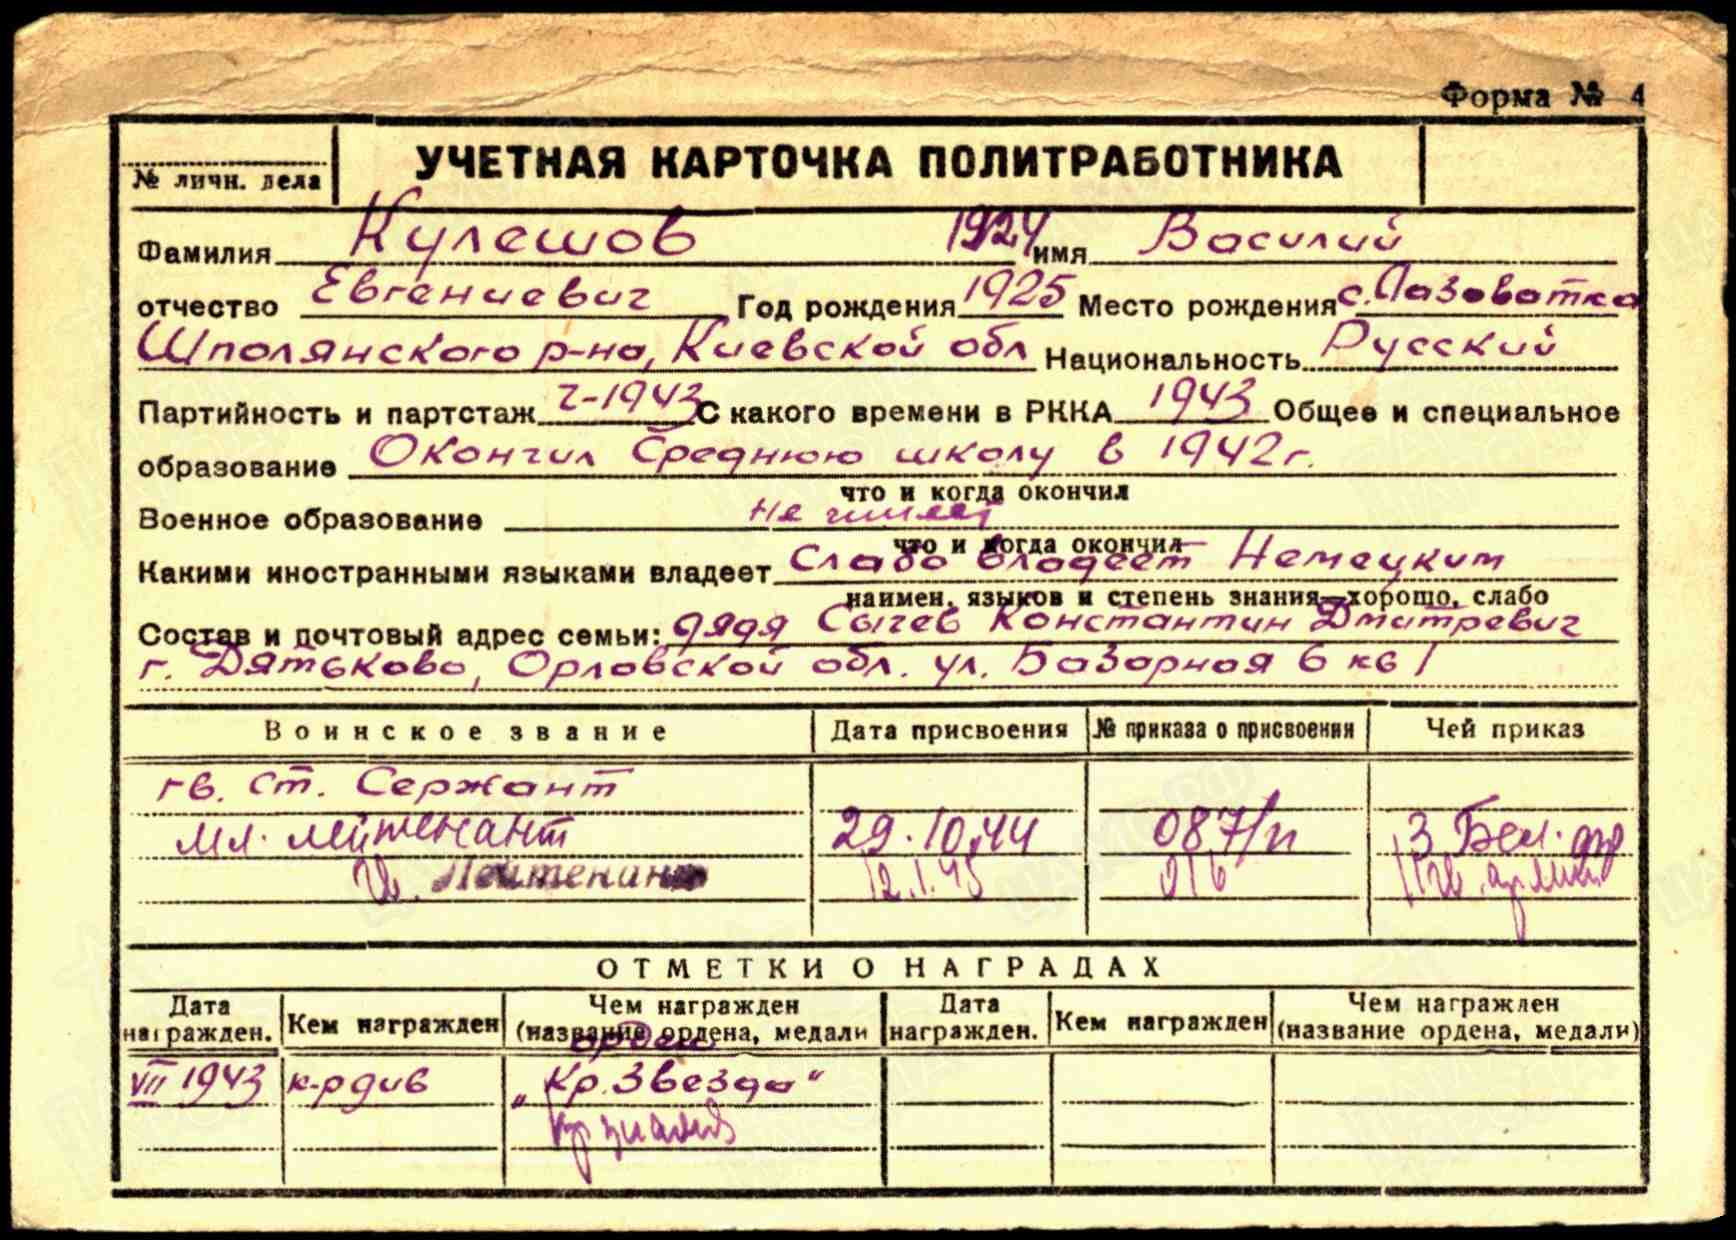 Форма № 4
№ личн. дела
УЧЕТНАЯ КАРТОЧКА ПОЛИТРАБОТНИКА
Фамилия Кулешов 1924 имя Василий
отчество Евгениевич Год рождения 1925 Место рождения с. Лазоватка
Шполянского р-на, Киевской обл Национальность Русский
Партийность и партстаж ч-1943 С какого времени в РККА 1943 Общее и специальное
образование Окончил Среднюю школу в 1942г.
что и когда окончил
Военное образование Не имеет
что и когда окончил
Какими иностранными языками владеет Слабо владеет Немецким
наимен. языков и степень знания—хорошо, слабо
Состав и почтовый адрес семьи: дядя Сычев Константин Дмитревич
г. Дятьково, Орловской обл. ул. Базарная 6 кв 1
Воинское звание Дата присвоения № приказа о присвоении Чей приказ
гв. ст. Сержант
мл. лейтенант 29.10.44 087/п 3 Бел. фр
Лейтенант 12.1.45 016 11 гв. армии
ОТМЕТКИ О НАГРАДАХ
Дата награжден. Кем награжден Чем награжден (название ордена, медали Дата награжден. Кем награжден Чем награжден (название ордена, медали)
орден
VII 1943 к-р див „Кр. Звезда“